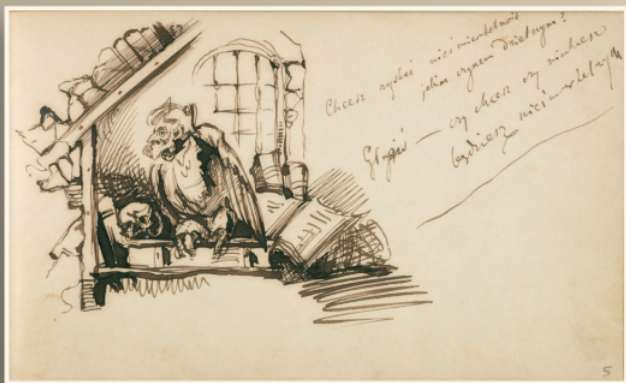 Chcesz zyskać nieśmiertelność
jakim czynem dzielnym?
Głupiś — czy chcesz czy niechcesz
będziesz nieśmiertelnym
5